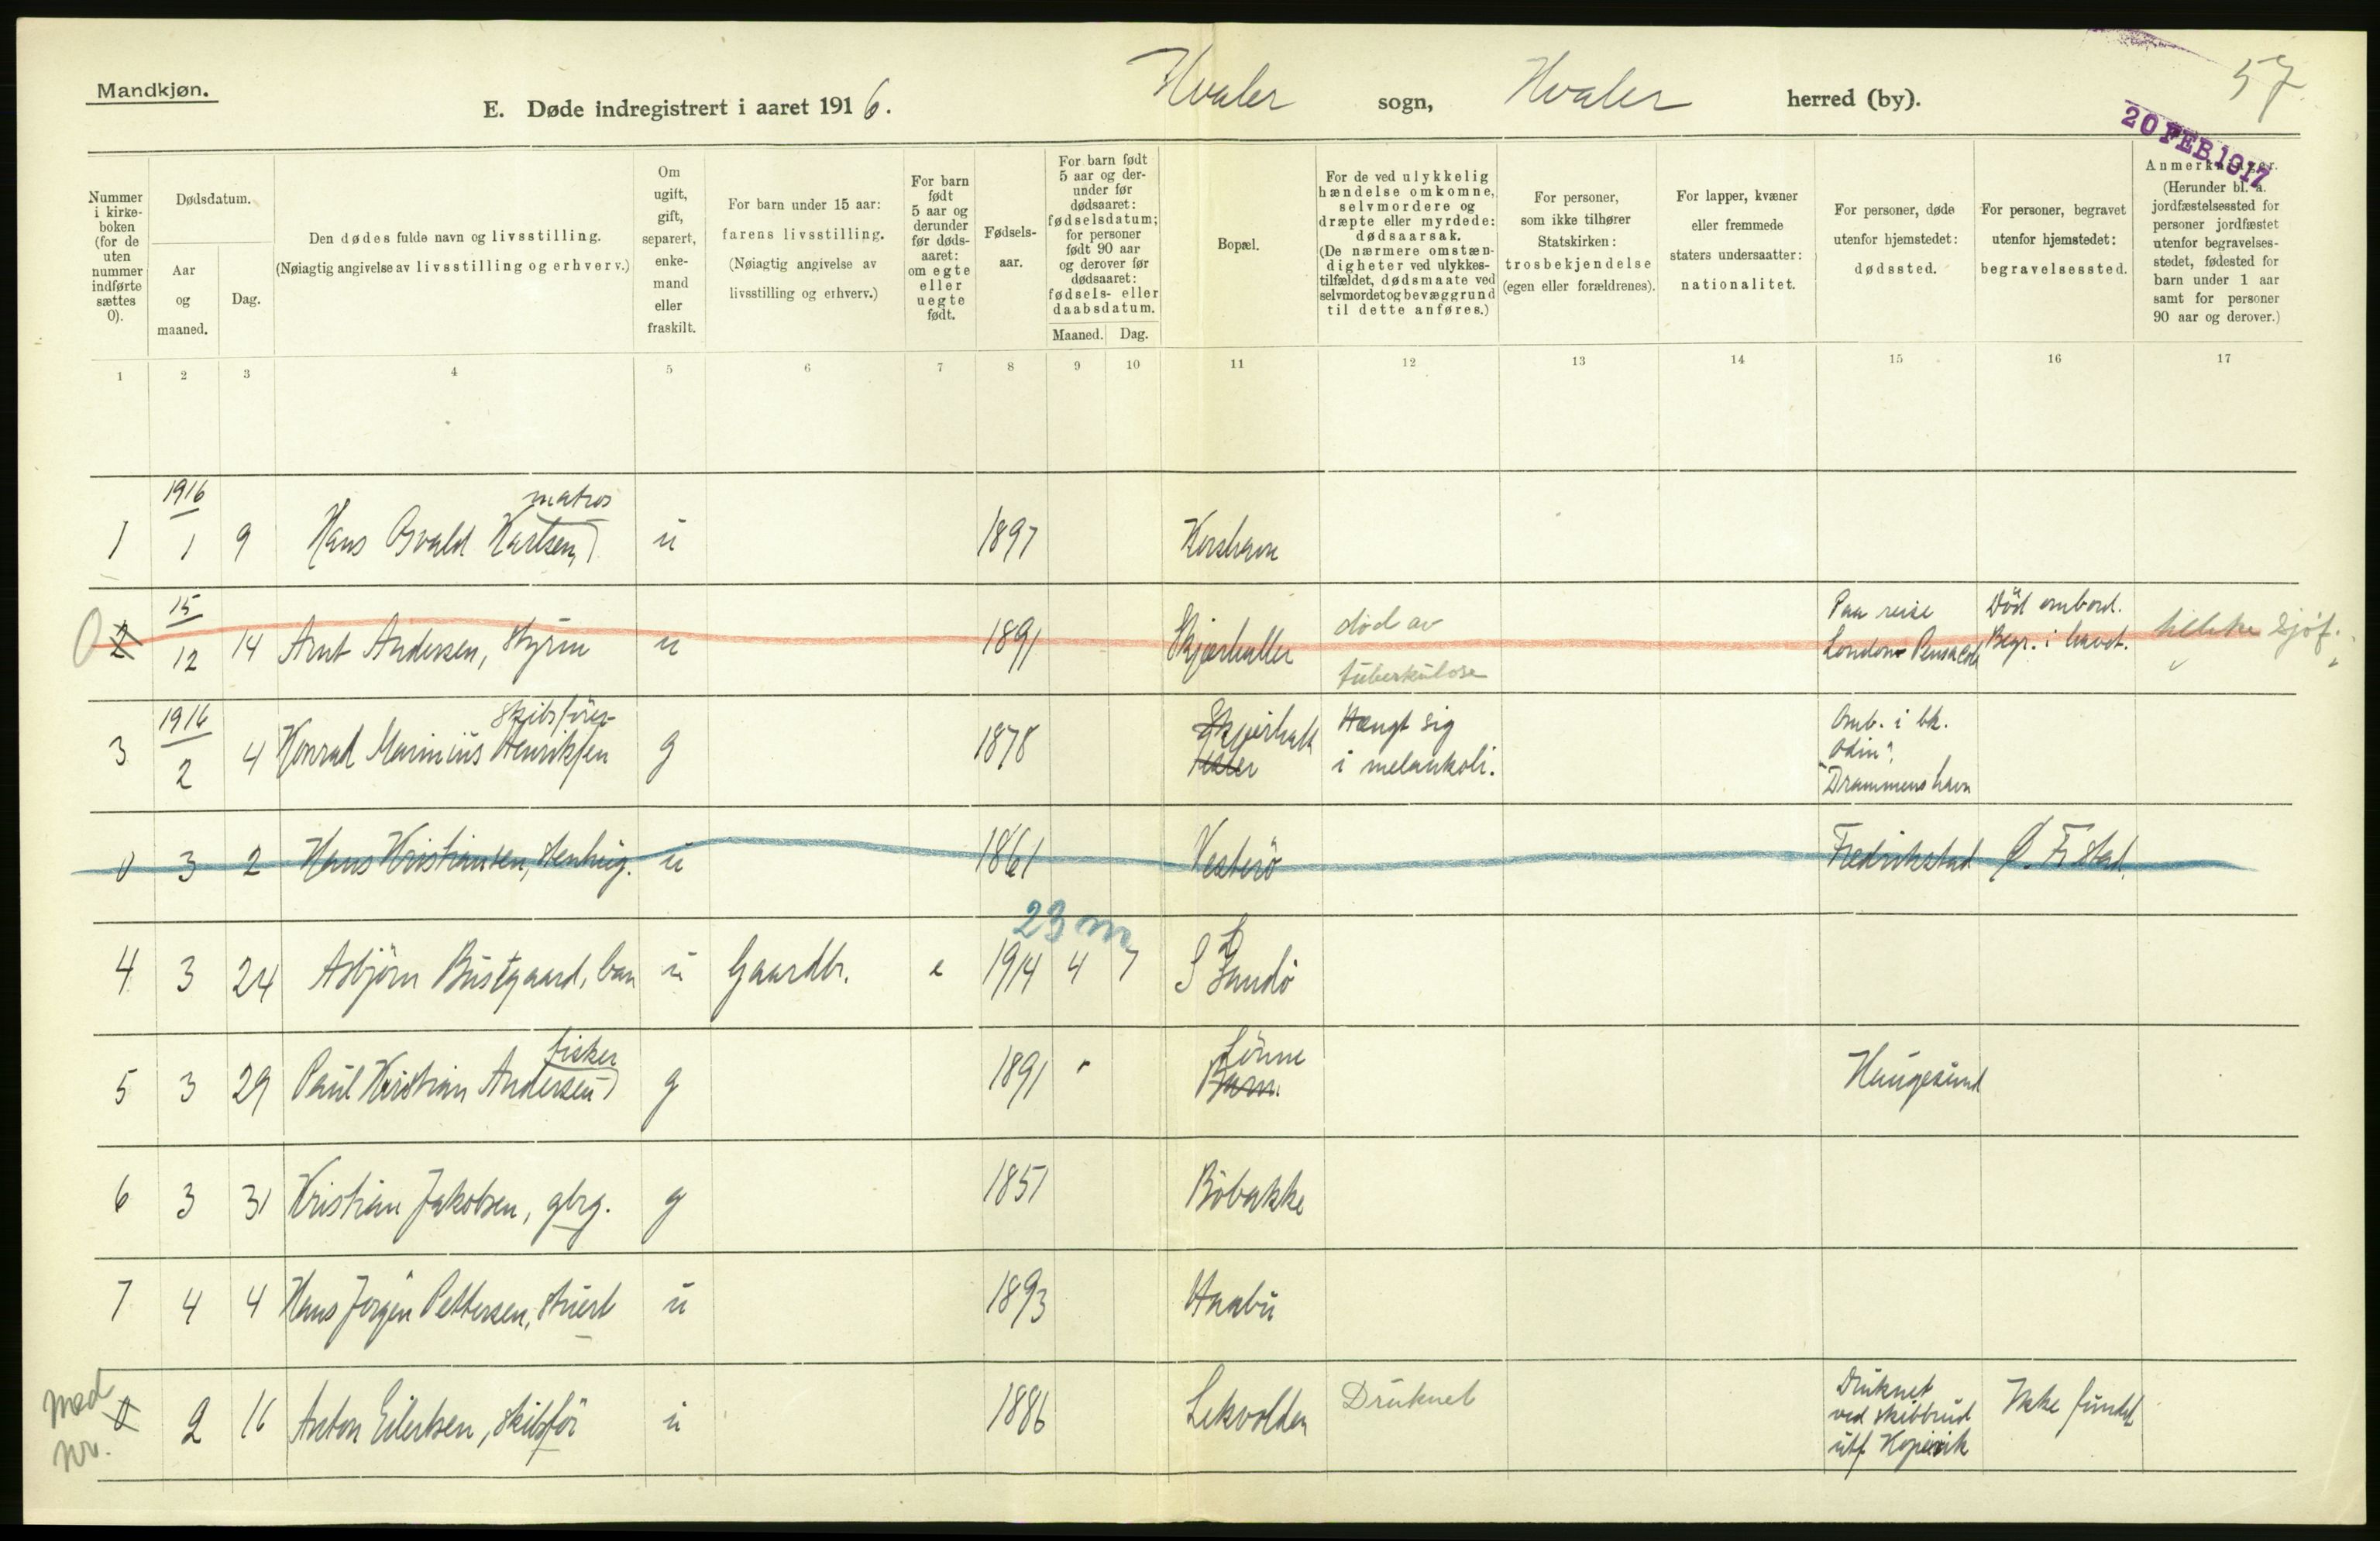 57
Mandkjøn.
E. Døde indregistrert i aaret 1916. Hvaler sogn, Hvaler herred (by).
20 FEB 1917
Nummer i kirkeboken (for de uten nummer indførte sættes 0).
Dødsdatum.
Aar og maaned.
Dag.
Den dødes fulde navn og livsstilling.
(Nøiagtig angivelse av livsstilling og erhverv.)
Om ugift, gift, separert, enkemand eller fraskilt.
For barn under 15 aar: farens livsstilling.
(Nøiagtig angivelse av livsstilling og erhverv.)
For barn født 5 aar og derunder før dødsaaret: om egte eller uegte født.
Fødselsaar.
For barn født 5 aar og derunder før dødsaaret: fødselsdatum; for personer født 90 aar og derover før dødsaaret: fødsels- eller daabsdatum.
Maaned. Dag.
Bopæl.
For de ved ulykkelig hændelse omkomne, selvmordere og dræpte eller myrdede: dødsaarsak.
(De nærmere omstændigheter ved ulykkestilfældet, dødsmaate ved selvmordet og bevæggrund til dette anføres.)
For personer, som ikke tilhører Statskirken: trosbekjendelse (egen eller forældrenes).
For lapper, kvæner eller fremmede staters undersaatter: nationalitet.
For personer, døde utenfor hjemstedet: dødssted.
For personer, begravet utenfor hjemstedet: begravelsessted.
Anmerkninger.
(Herunder bl. a. jordfæstelsessted for personer jordfæstet utenfor begravelsesstedet, fødested for barn under 1 aar samt for personer 90 aar og derover.)
1 2 3 4 5 6 7 8 9 10 11 12 13 14 15 16 17
1 1916 1 9 Hans Osvald Karlsen, matros u 1897 Korshavn
0 2 15 12 14 Arnt Andersen, styrm u 1891 Skjærhallen død av tuberkulose Paa reise London Pensacola Død ombord. Begr. i havet.
3 1916 2 4 Konrad Marinius Henriksen skibsfører g 1878 Skjærhall Hængt sig i melankoli. Omb. i bk. "Odin", Drammens havn
0 3 2 Hans Kristiansen, stenhug. u 1861 Vesterö Fredrikstad Ø. Fr.stad.
23 m
4 3 24 Asbjörn Bustgaard, barn u Gaardbr. e 1914 4 7 S Sandö
5 3 29 Paul Kristian Andersen fisker g 1891 Lönne Haugesund
6 3 31 Kristian Jakobsen, gbrg. g 1851 Böbakke
7 4 4 Hans Jörgen Pettersen, stuert u 1893 Haabu
med nr. 0 2 16 Anton Eilertsen, skibsför u 1886 Lekvolden Druknet Druknet ved skibbrud utf. Kopervik Ikke fundet